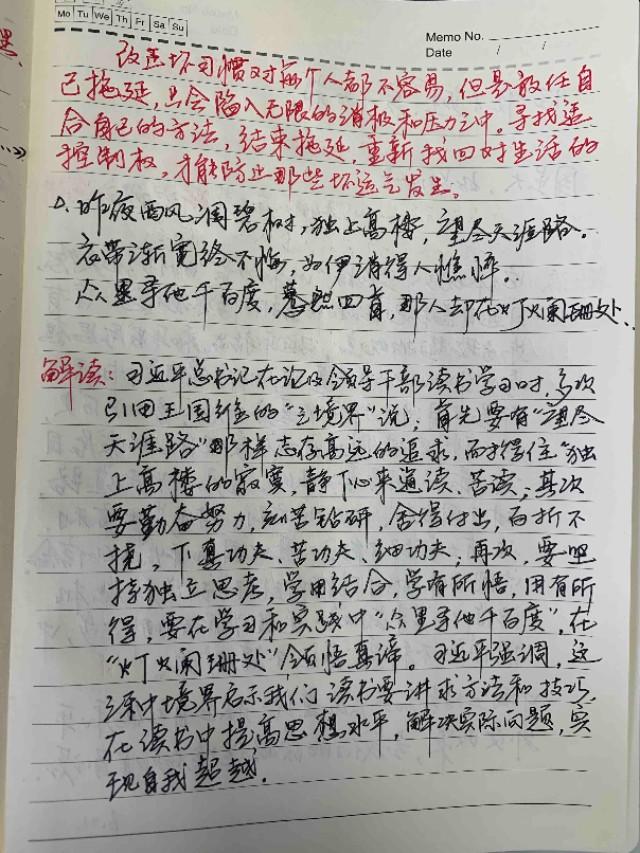 Mo Tu We Th Fr Sa Su
Memo No.
Date / /
改善坏习惯对每个人都不容易,但是放任自
己拖延,只会陷入无限的消极和压力之中。寻找适
合自己的方法,结束拖延,重新找回对生活的
控制权,才能防止那些坏运气发生。
1. 昨夜西风凋碧树,独上高楼,望尽天涯路。
衣带渐宽终不悔,为伊消得人憔悴。
众里寻他千百度,蓦然回首,那人却在灯火阑珊处。
解读:习近平总书记在论及领导干部读书学习时,多次
引用王国维的“三境界”说,首先要有“望尽
天涯路”那样志存高远的追求,耐得住“独
上高楼”的寂寞,静下心来通读、苦读;其次
要勤奋努力,刻苦钻研,舍得付出,百折不
挠,下真功夫、苦功夫、细功夫;再次,要坚
持独立思考,学用结合,学有所悟,用有所
得,要在学习和实践中“众里寻他千百度”,在
“灯火阑珊处”领悟真谛。习近平强调,这
三种境界启示我们读书要讲求方法和技巧,
在读书中提高思想水平,解决实际问题,实
现自我超越。